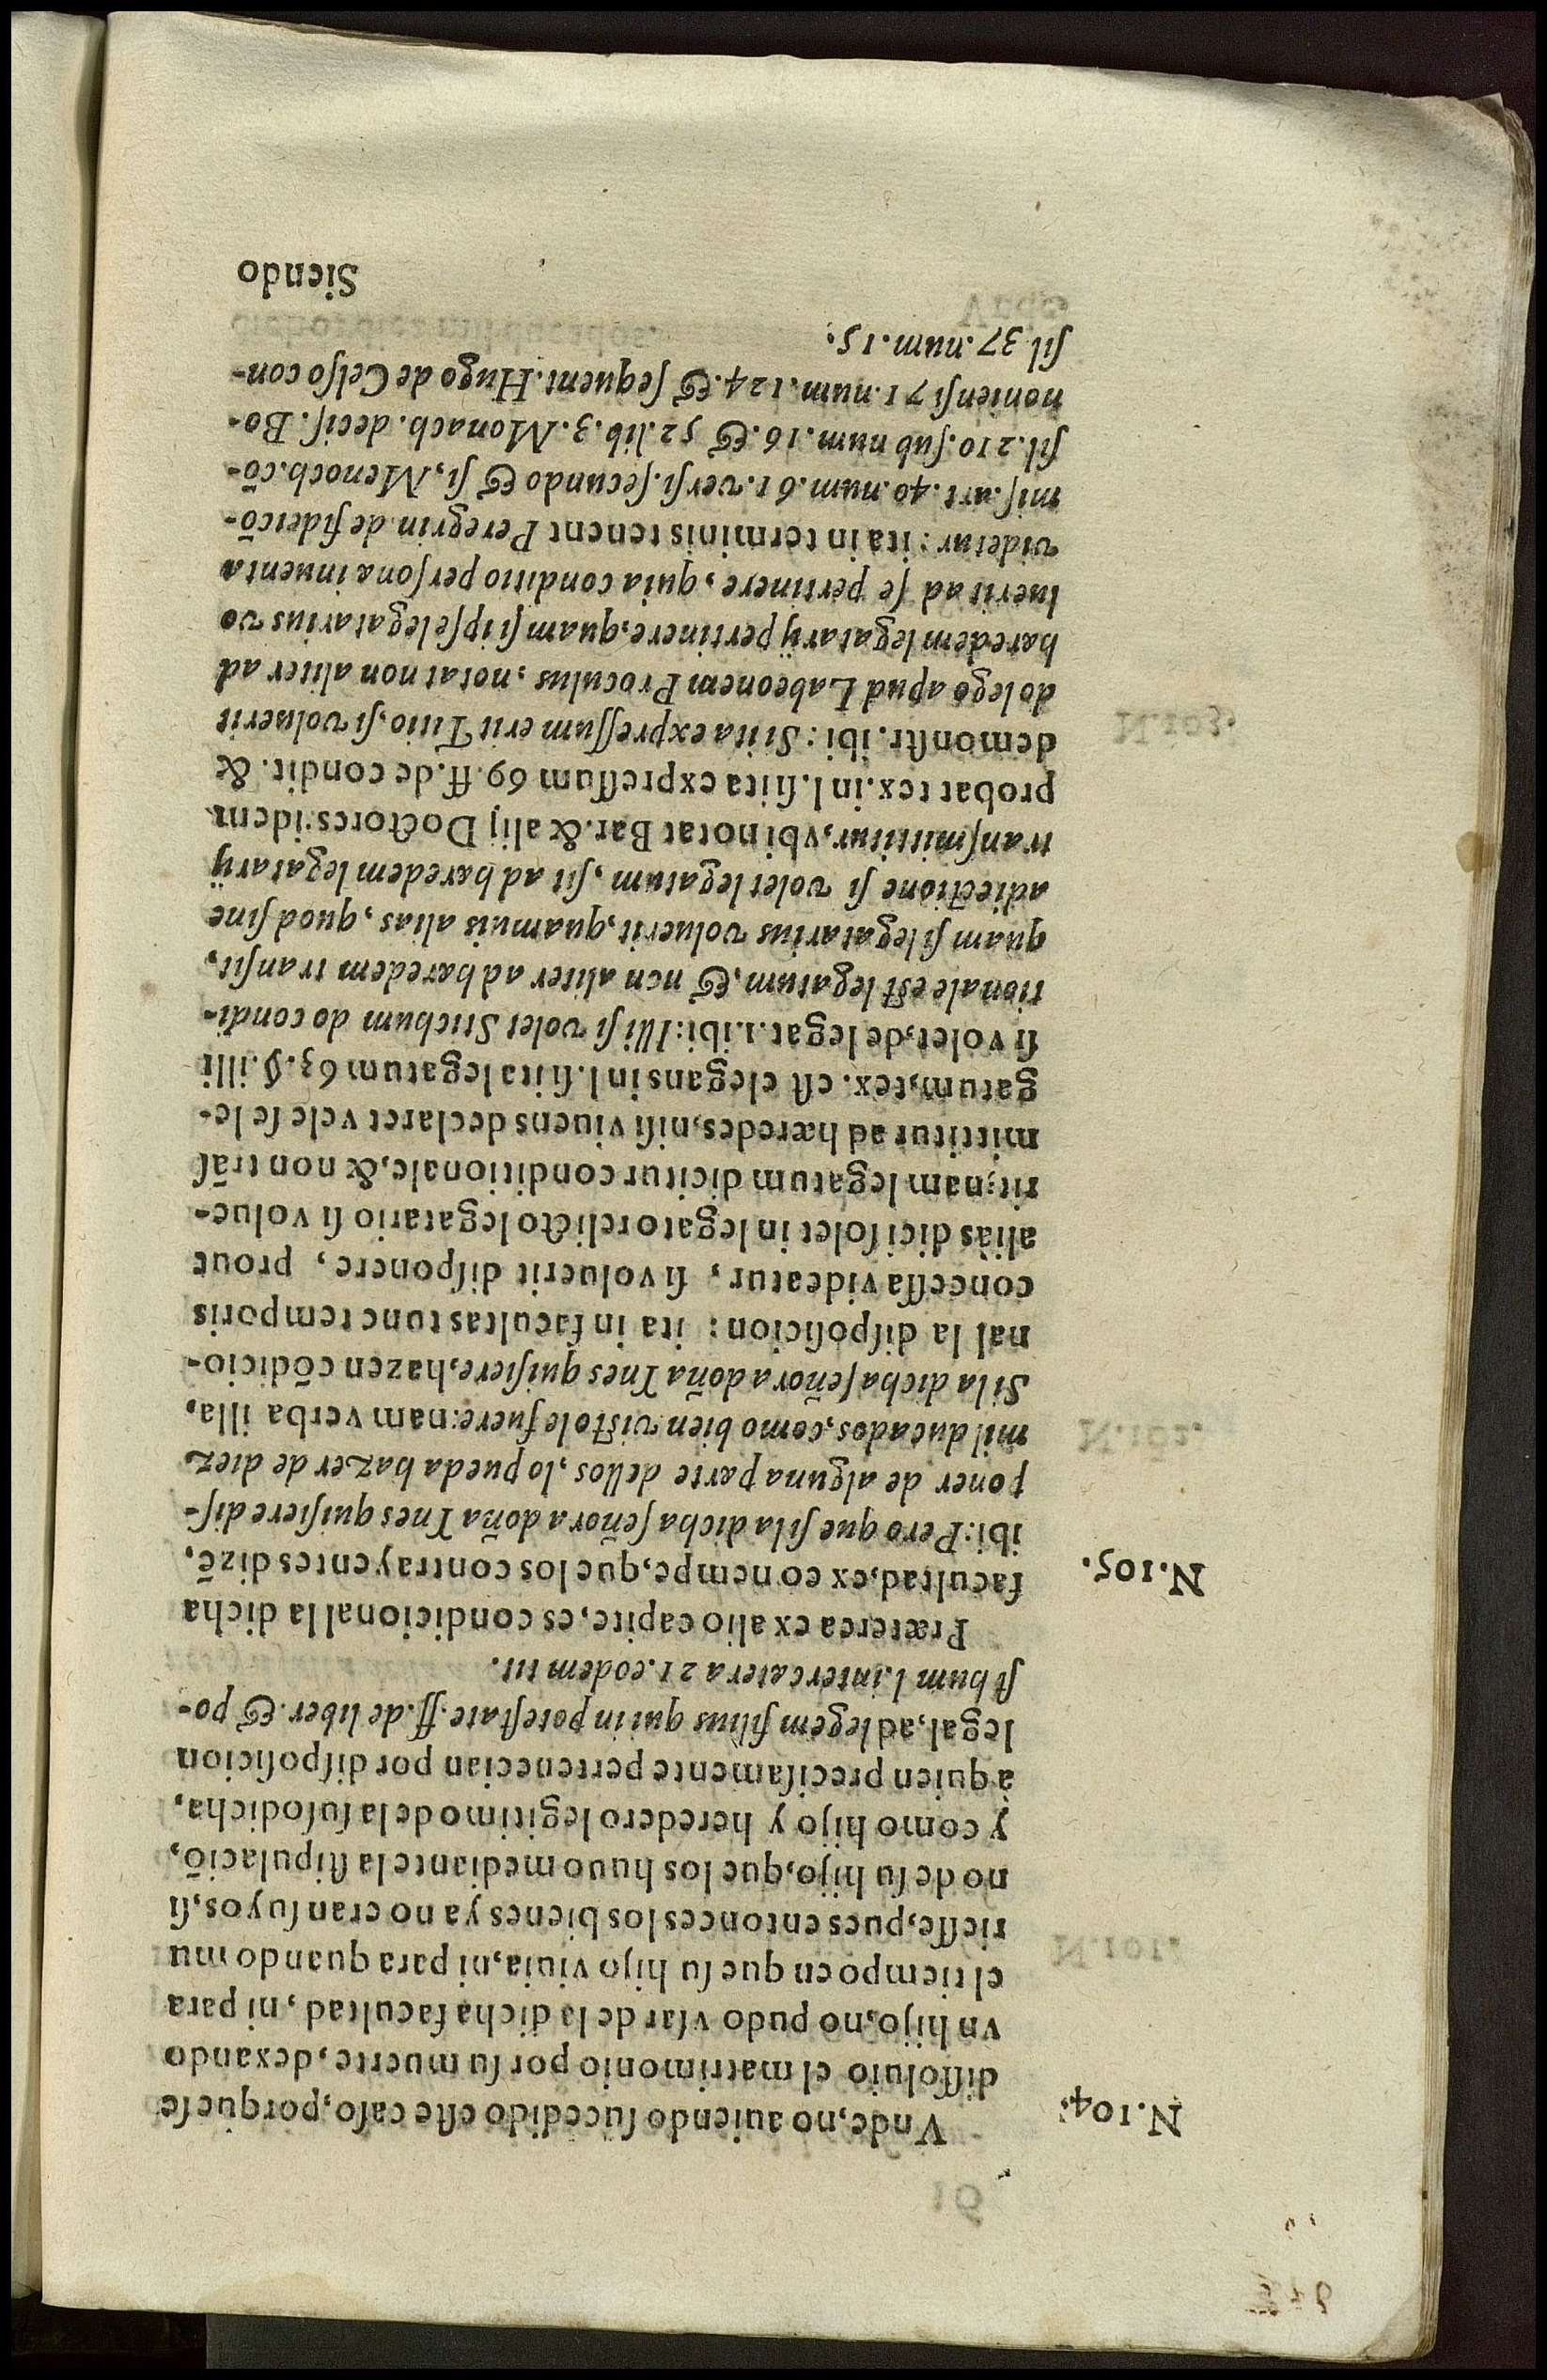 N.104.
Vnde, no auiendo ſucedido eſte caſo, porque ſe
diſſoluio el matrimonio por ſu muerte, dexando
vn hijo, no pudo vſar de la dicha facultad, ni para
el tiempo en que ſu hijo viuia, ni para quando mu
rieſſe, pues entonces los bienes ya no eran ſuyos, ſi
no de ſu hijo, que los huuo mediante la ſtipulaciõ,
y como hijo y heredero legitimo de la ſuſodicha,
à quien preciſamente pertenecian por diſpoſicion
legal, ad legem filius qui in poteſtate. ff. de liber. & po-
ſt hum l. inter cætera 21. eodem tit.
N.105.
Præterea ex alio capite, es condicional la dicha
facultad, ex eo nempe, que los contrayentes dizẽ,
ibi: Pero que ſi la dicha ſeñora doña Ynes quiſiere diſ-
poner de alguna parte dellos, lo pueda hazer de diez
mil ducados, como bien viſto le fuere: nam verba illa,
Si la dicha ſeñora doña Ynes quiſiere, hazen cõdicio-
nal la diſpoſicion: ita in facultas tunc temporis
conceſſa videatur, ſi voluerit diſponere, prout
aliàs dici ſolet in legato relicto legatario ſi volue-
rit; nam legatum dicitur conditionale, & non trãſ
mittitur ad hæredes, niſi viuens declaret velle ſe le-
gatum, tex. eſt elegans in l. ſi ita legatum 63. §. illi
ſi volet, de legat. 1. ibi: Illi ſi volet Stichum do condi-
tionale eſt legatum, & non aliter ad hæredem tranſit,
quam ſi legatarius voluerit, quamuis alias, quod ſine
adiectione ſi volet legatum, ſit ad hæredem legatarij
tranſmittitur, vbi notat Bar. & alij Doctores: idem
probat tex. in l. ſi ita expreſſum 69. ff. de condit. &
demonſtr. ibi: Si ita expreſſum erit Titio, ſi voluerit
do lego apud Labeonem Proculus, notat non aliter ad
hæredem legatarij pertinere, quam ſi ipſe legatarius vo
luerit ad ſe pertinere, quia conditio perſonæ iniuncta
videtur: ita in terminis tenent Peregrin. de fideicõ-
miſ. art. 40. num. 61. verſi. ſecundo & ſi, Menoch. cõ-
ſil. 210. ſub num. 16. & 52. lib. 3. Monach. deciſ. Bo-
nonienſi 71. num. 124. & ſequent. Hugo de Celſo con-
ſil 37. num. 15.
Siendo